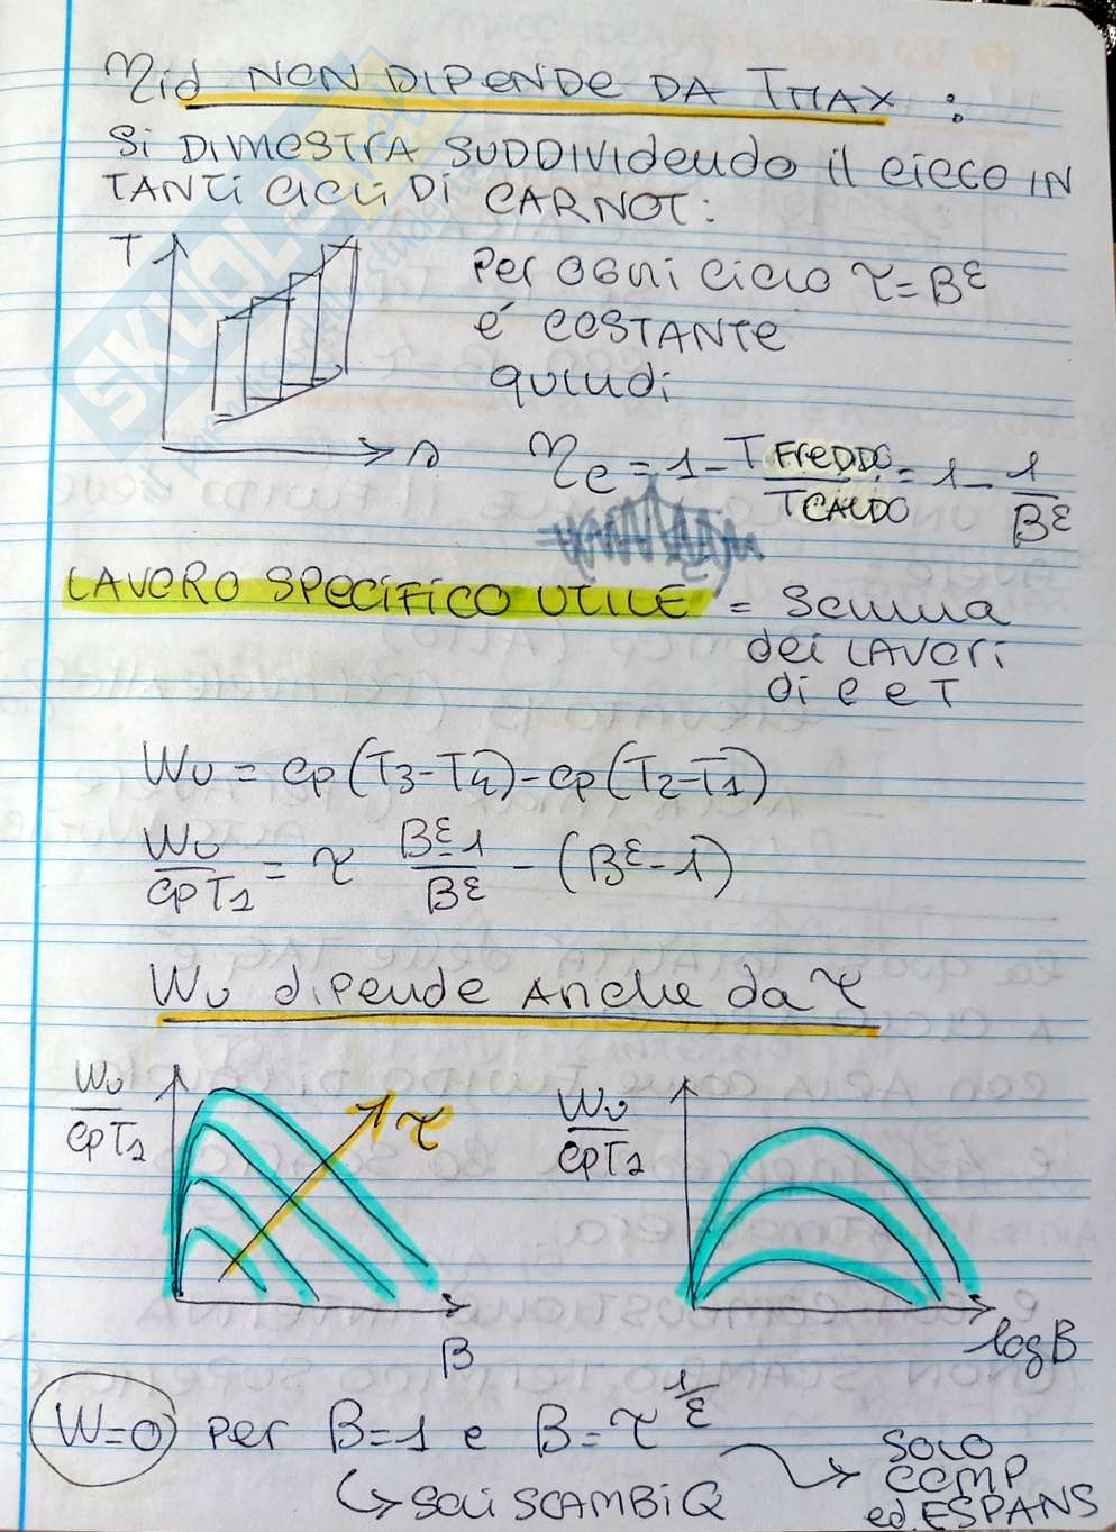 ηid NON DIPENDE DA TMAX :
Si DIMOSTRA SUDDIVIdendo il CICLO IN
TANTI CICLI DI CARNOT:
T
Per OGNI Ciclo τ=β^ε
é COSTANTE
quindi
s
ηe = 1 - TFREDDO/TCALDO = 1 - 1/β^ε
LAVORO SPECIFICO UTILE = Somma
dei LAVori
di C e T
Wu = cp(T3-T4)-cp(T2-T1)
Wu/cpT1 = τ (β^ε-1)/β^ε - (β^ε-1)
Wu dipende Anche da τ
Wu/cpT1
τ
β
Wu/cpT1
logβ
W=0 per β=1 e β=τ^(1/ε)
↳ SOLI SCAMBI Q
→ SOLO
COMP
ed ESPANS